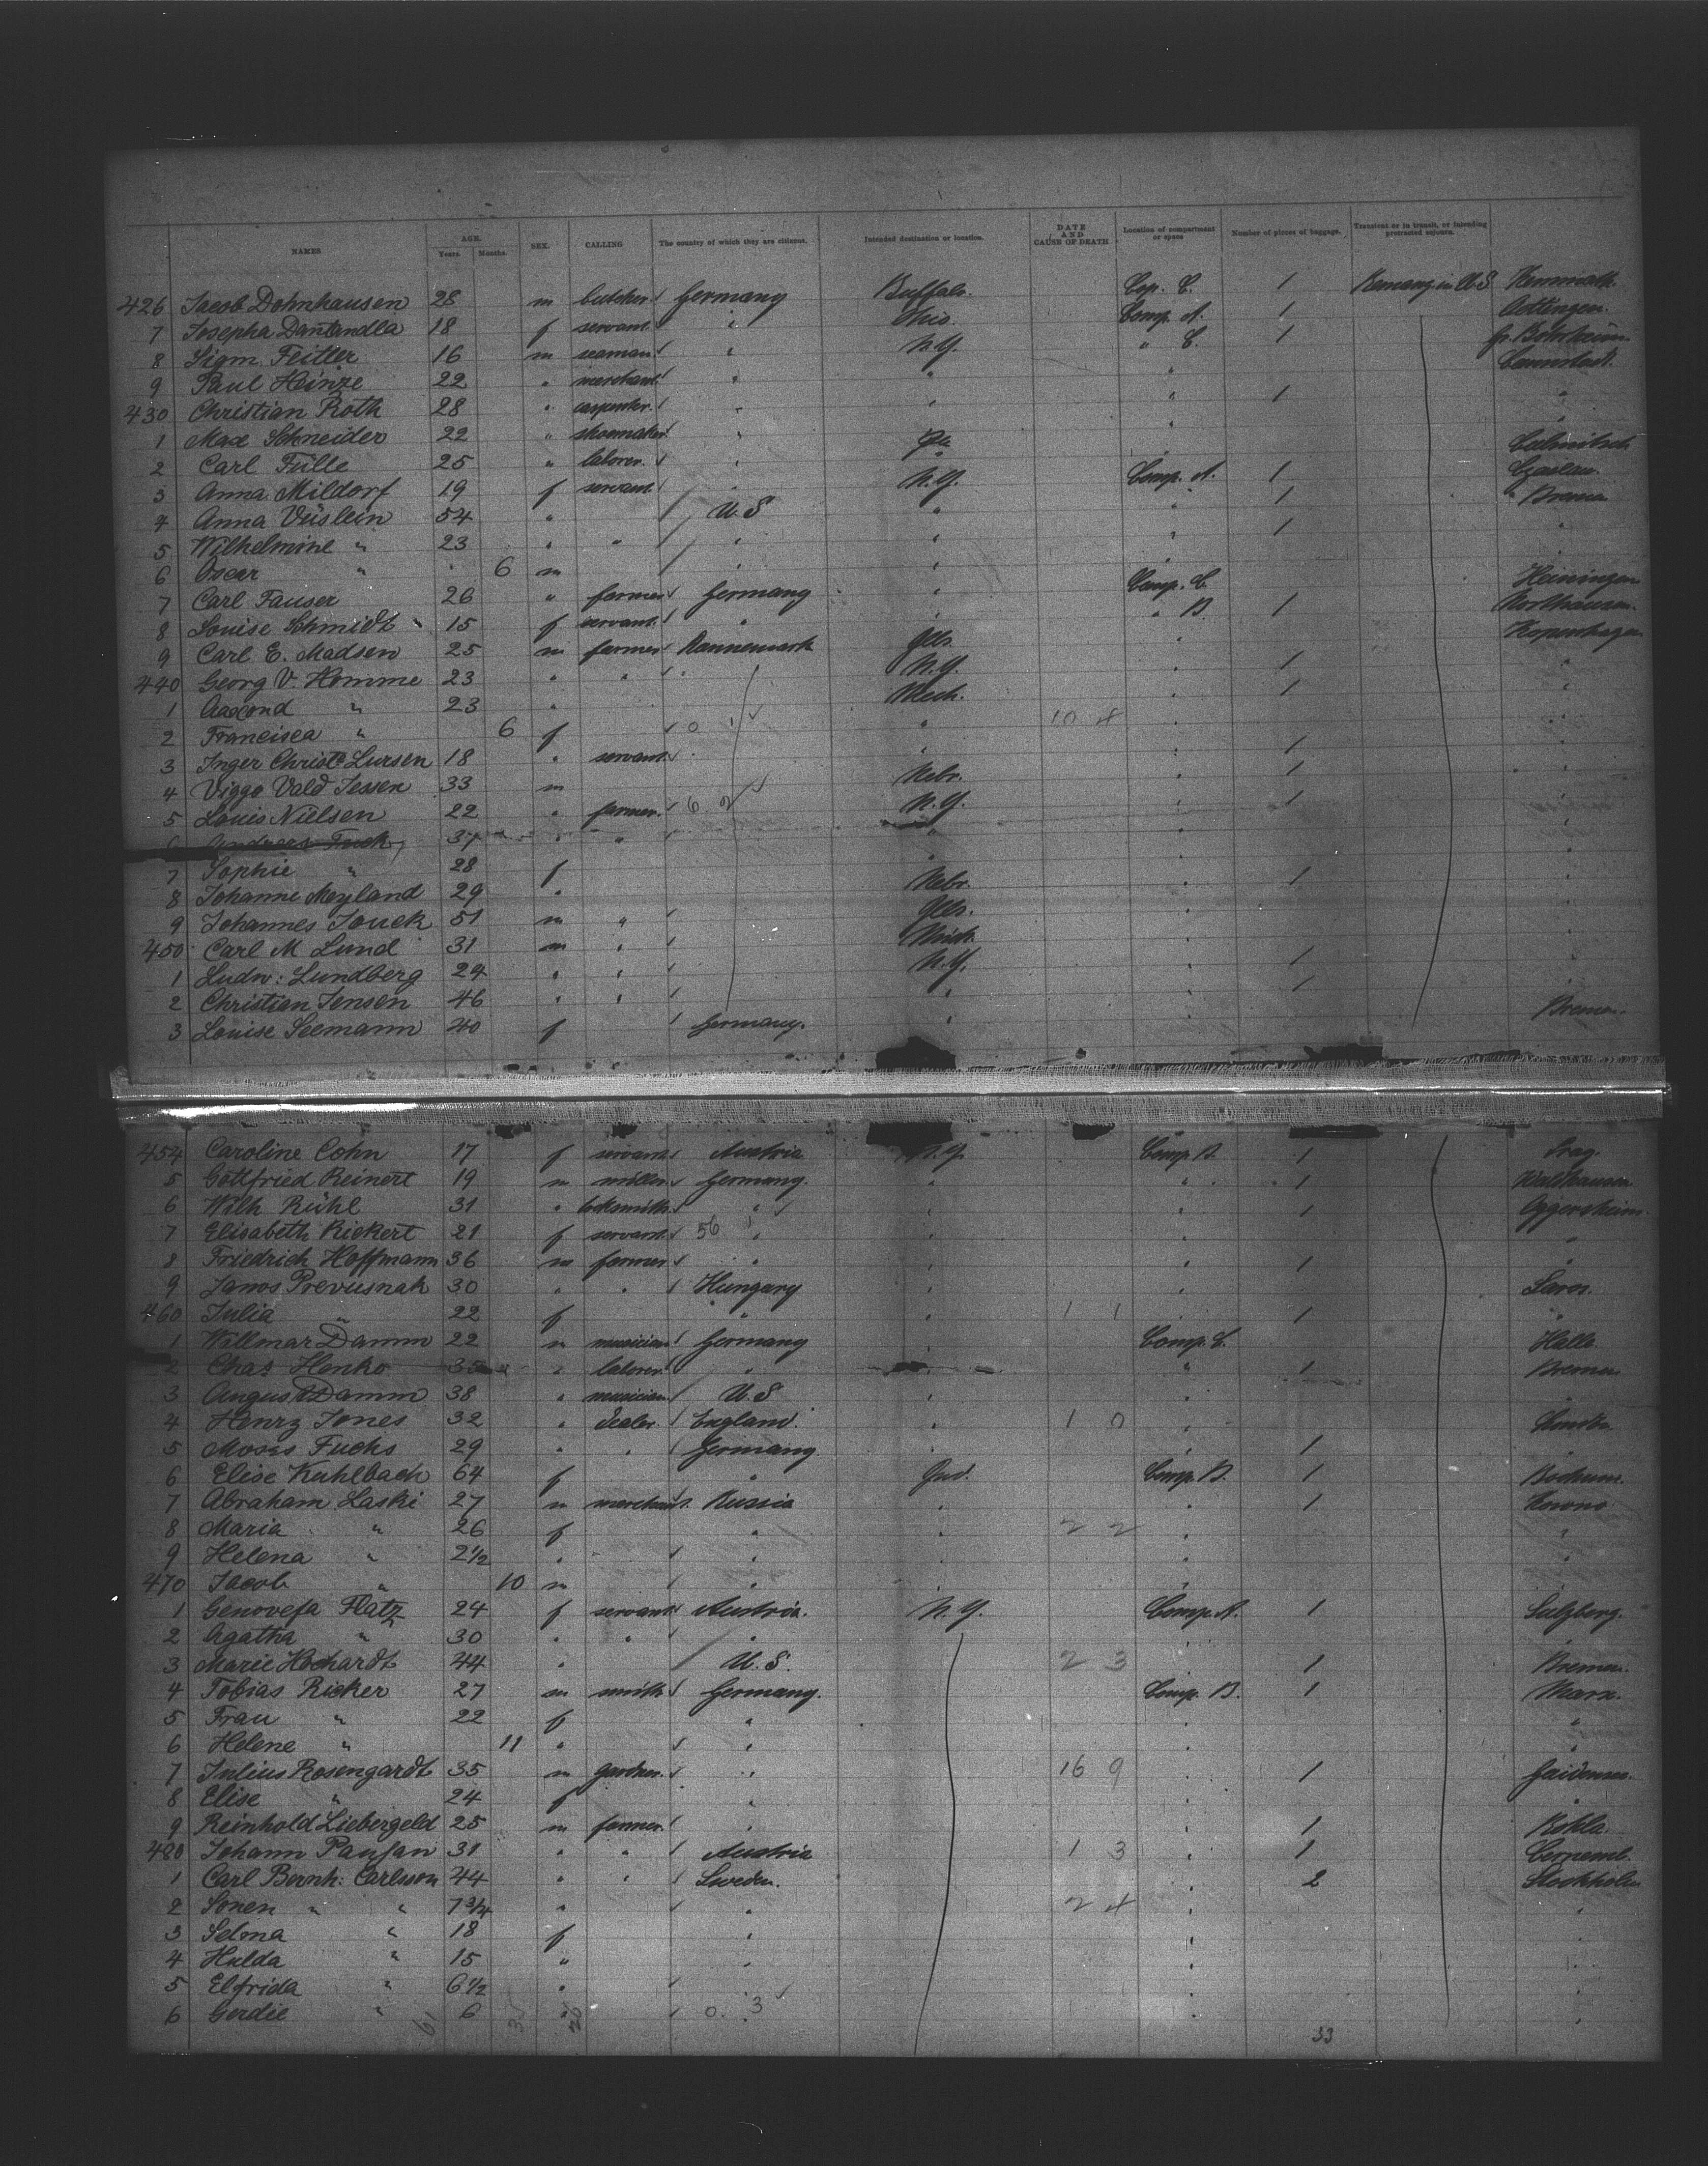 NAMES AGE. Years. Months. SEX. CALLING The country of which they are citizens. Intended destination or location. DATE AND CAUSE OF DEATH Location of compartment or space Number of pieces of baggage. Transient or in transit, or intending protracted sojourn.
426 Jacob Dohnhausen 28 m butcher Germany Buffalo. C. 1
7 Josepha Dantandla 18 f servant " Ohio. Comp. A. 1 Oettingen.
8 Sigm. Feitler 16 m seaman " N.Y. " C. 1
9 Paul Heinze 22 " merchant " " " Cannstadt.
430 Christian Roth 28 " carpenter " " " 1 "
1 Max Schneider 22 " shoemaker " " "
2 Carl Fülle 25 " laborer " Pa
3 Anna Mildorf 19 f servant " N.Y. Comp. A. 1 Czaslau.
4 Anna Vüslein 54 " U.S " " 1 Bremen
5 Wilhelmine " 23 " " " " " 1 "
6 Oscar " 6 m " " "
7 Carl Fauser 26 " farmer Germany " Comp. C. Heiningen
8 Louise Schmidt 15 f servant " " " B. 1 Northausen.
9 Carl E. Madsen 25 m farmer Dannemark Ills. " Kopenhagen
440 Georg V. Homme 23 " " " N.Y. " 1 "
1 Aascond " 23 " Mich. " 1 "
2 Francisca " 6 f 0 1 " 10 4 "
3 Inger Christe Lursen 18 " servant " " 1 "
4 Viggo Vald Jessen 33 m Nebr. " 1 "
5 Louis Nielsen 22 " farmer 6 2 N.Y. " 1 "
6 Andreas Fuck 37 " " " " "
7 Sophie " 28 f " "
8 Johanne Meyland 29 " Nebr. " 1 "
9 Johannes Jouck 51 m " Ills. " "
450 Carl M Lund 31 m " Mich. "
1 Ludw: Lundberg 24 " " N.Y. " 1 "
2 Christian Jensen 46 " " " " 1 "
3 Louise Seemann 40 f Germany. " " Bremen.
454 Caroline Cohn 17 f servant Austria N.Y. Comp B. 1 Prag.
5 Gottfried Reinert 19 m miller Germany. " 1 Waldhausen
6 Wilh Rühl 31 " locksmith " " " 1 Oggersheim.
7 Elisabeth Rickert 21 f servant 56 " " " "
8 Friedrich Hoffmann 36 m farmer " " " 1 "
9 Janos Prevusnak 30 " " Hungary " " Saros.
460 Julia " 22 f " " 1 1 " 1 "
1 Willmar Damm 22 m musician Germany " Comp. C. Halle.
2 Chas Henko 35 " laborer " " " 1 Bremen
3 August Damm 38 " musician U.S " " "
4 Henrz Jones 32 " dealer England. " 1 0 "
5 Moses Fuchs 29 " " Germany. " " 1 "
6 Elise Kuhlbach 64 f " Ind. Comp. B. 1 Bochum.
7 Abraham Laski 27 m merchant. Russia " " 1 Kowno
8 Maria " 26 f " " 2 2 " "
9 Helena " 2 1/2 " " " " "
470 Jacob " 10 m " " "
1 Genovefa Flatz 24 f servant Austria. N.Y. Comp. A. 1 Sulzberg.
2 Agatha " 30 " " " " "
3 Marie Hochardt 44 " U.S. 2 3 " 1 Bremen.
4 Tobias Ricker 27 m smith Germany. Comp. B. 1 Marx.
5 Frau " 22 f " " "
6 Helene " 11 " " " "
7 Julius Rosengardt 35 m gardner. " 16 9 " 1
8 Elise " 24 f " " "
9 Reinhold Liebergeld 25 m farmer " " 1
480 Johann Paufan 31 " " Austria 1 3 " 1
1 Carl Bernh: Carlsson 44 " " Sweden. " 2 Stockholm
2 Sonen " " 7 3/4 " " 2 4 " "
3 Selma " 18 f " " "
4 Hulda " 15 " " " "
5 Elfrida " 6 1/2 " " " "
6 Gerdie " 6 " 0. 3 " "
33